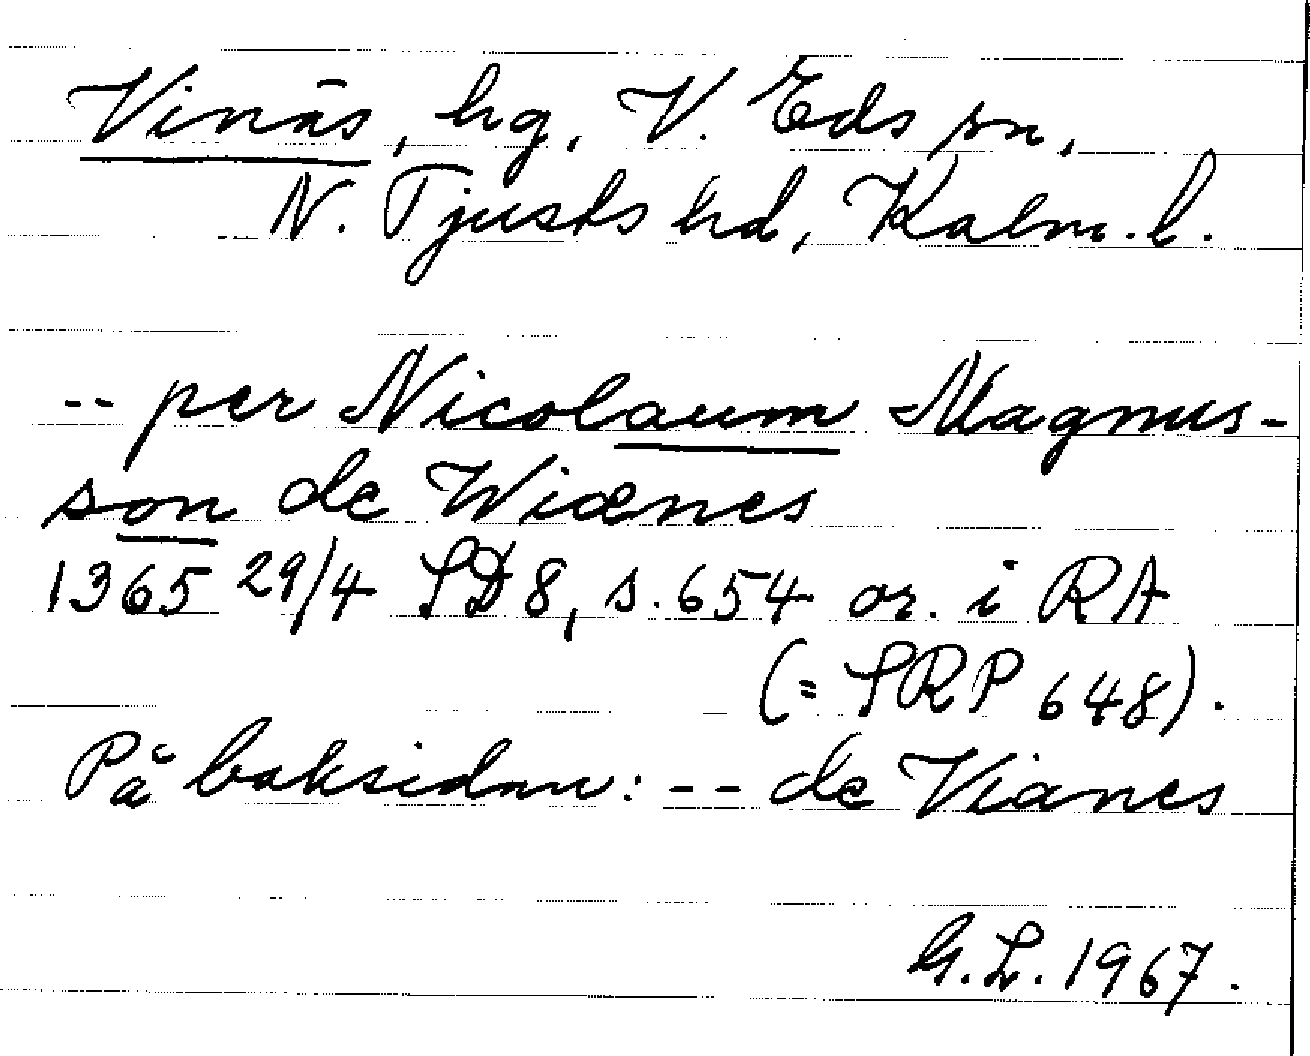 Vinäs, hg, V. Eds sn,
N. Tjusts hd, Kalm. l.
-- per Nicolaum Magnus-
son de Wiænes
1365 29/4 SD 8, s. 654 or. i RA
(= SRP 648).
På baksidan: -- de Vianes
G.L. 1967.